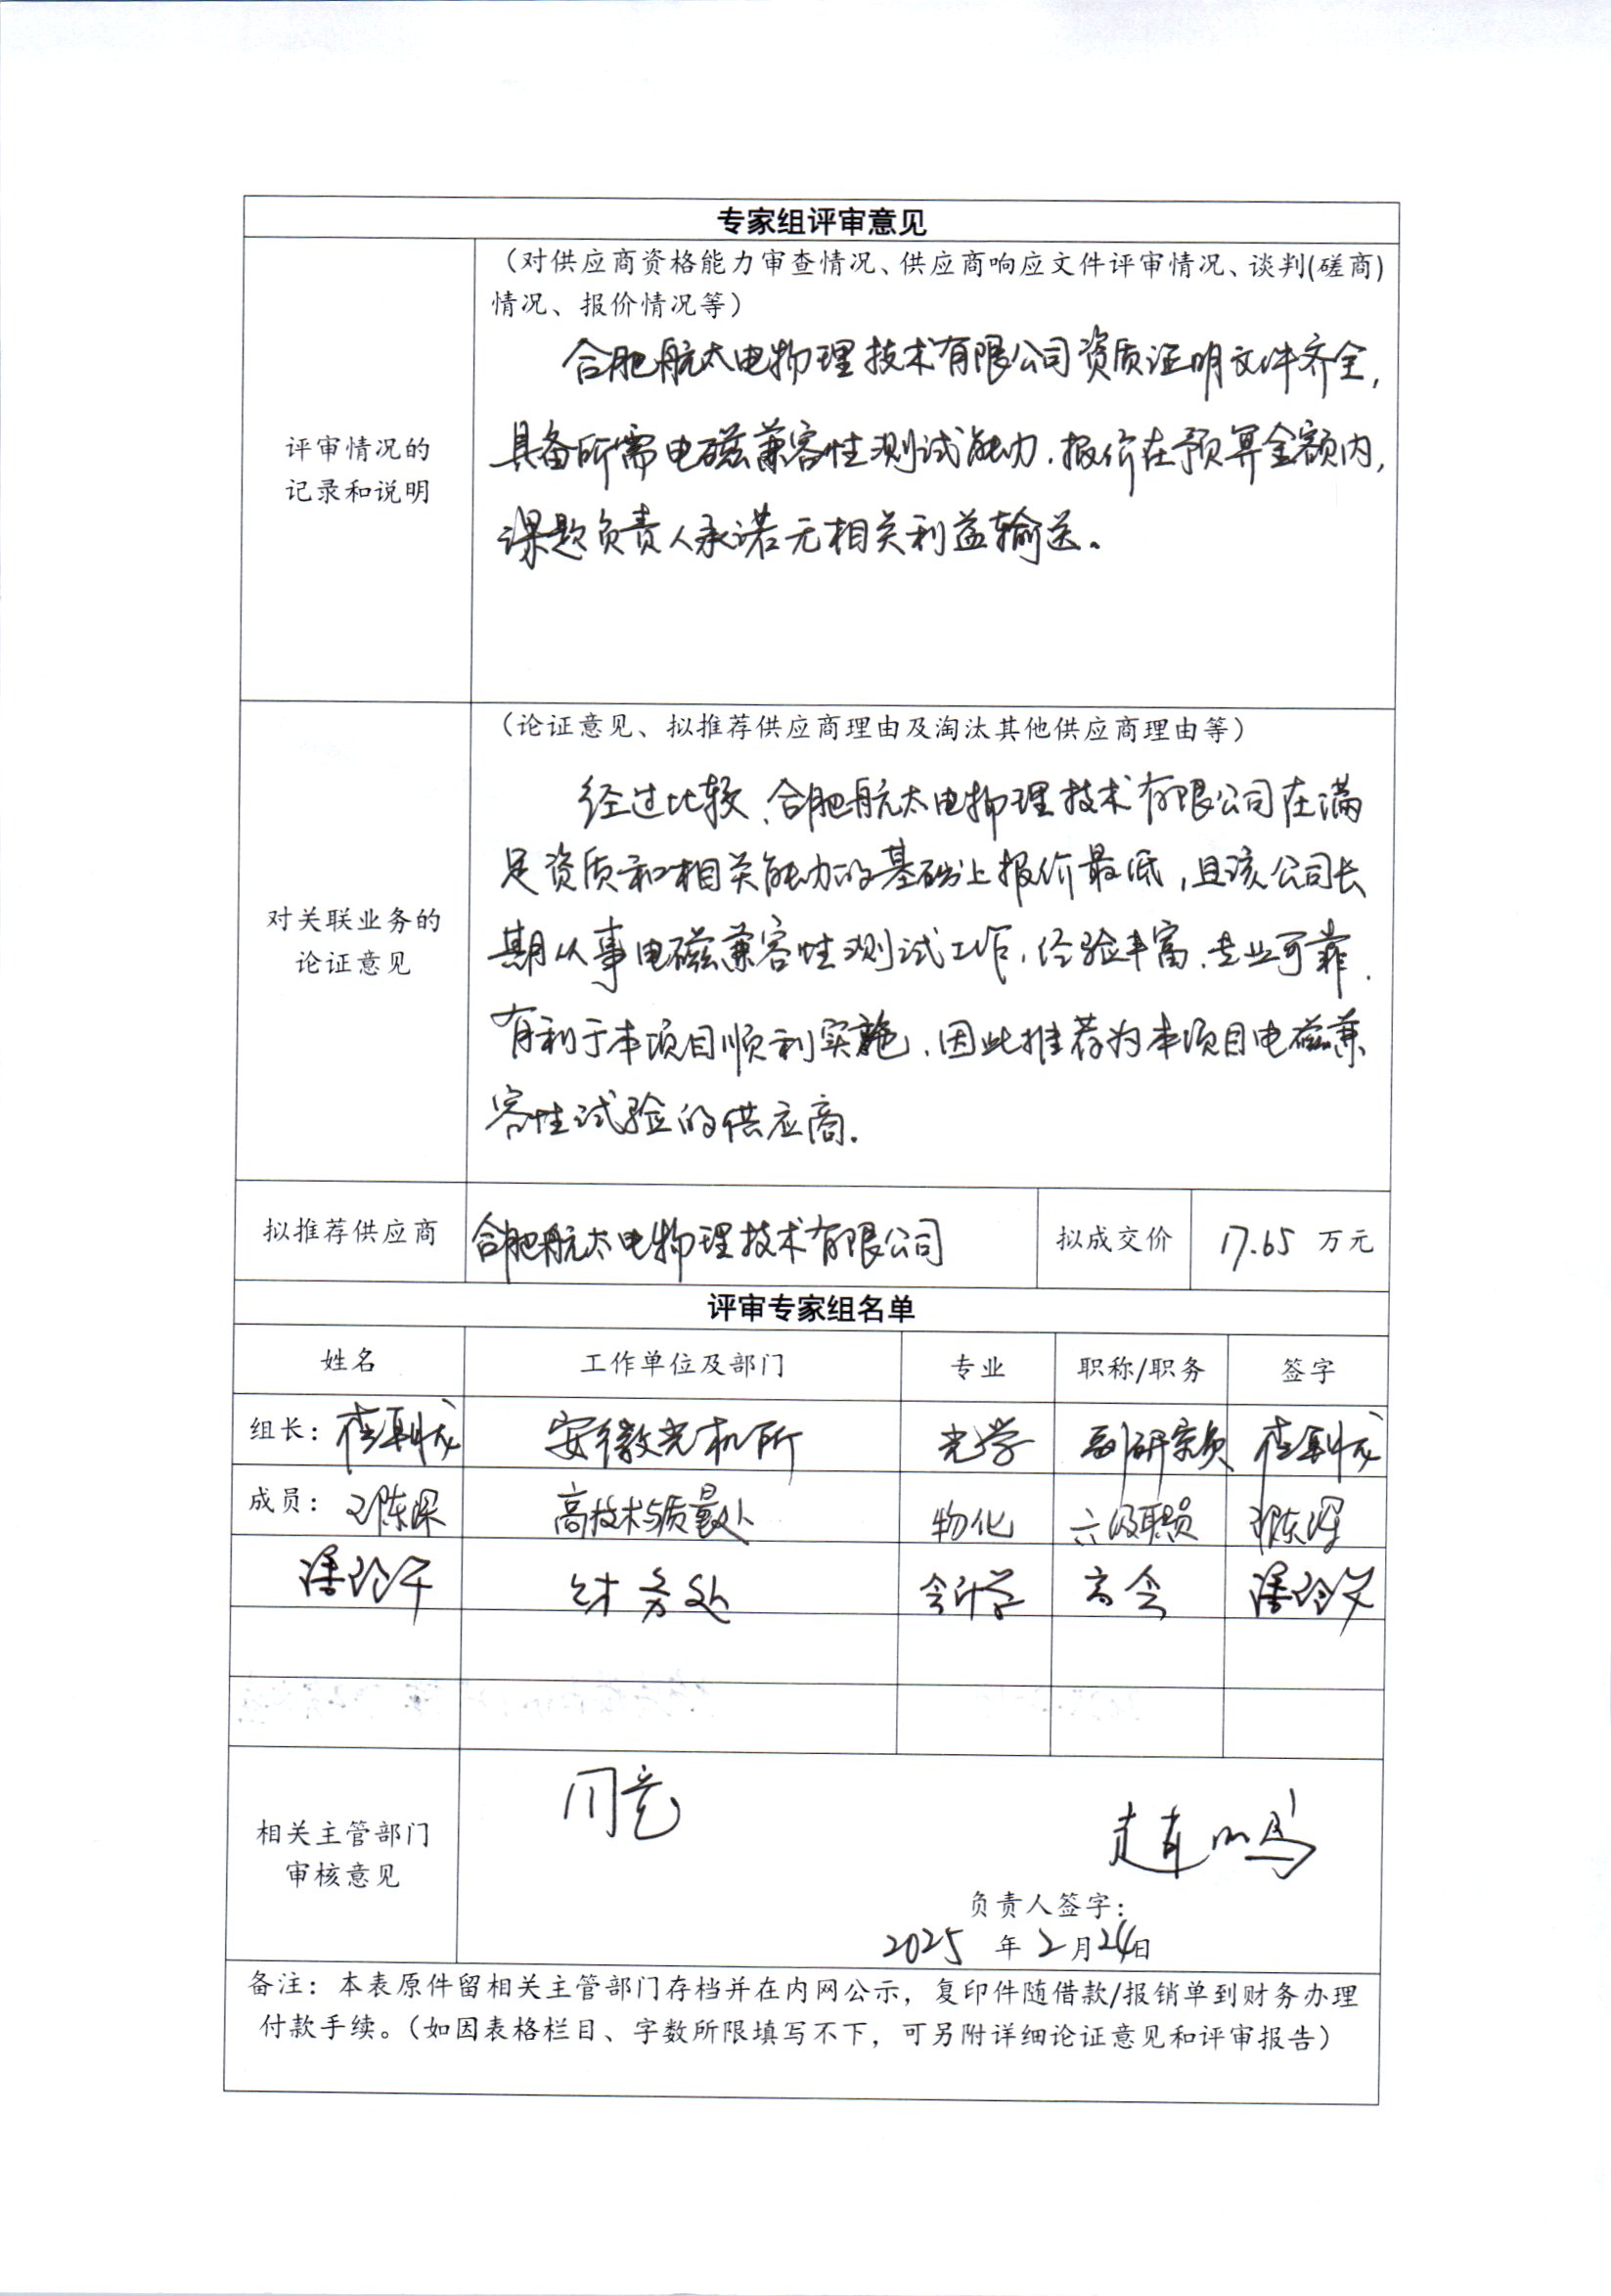 专家组评审意见
评审情况的
记录和说明
（对供应商资格能力审查情况、供应商响应文件评审情况、谈判(磋商)
情况、报价情况等）
合肥航太电物理技术有限公司资质证明文件齐全，
具备所需电磁兼容性测试能力，报价在预算金额内，
课题负责人承诺无相关利益输送。
对关联业务的
论证意见
（论证意见、拟推荐供应商理由及淘汰其他供应商理由等）
经过比较、合肥航太电物理技术有限公司在满
足资质和相关能力的基础上报价最低，且该公司长
期从事电磁兼容性测试工作，经验丰富、专业可靠，
有利于本项目顺利实施、因此推荐为本项目电磁兼
容性试验的供应商.
拟推荐供应商 合肥航太电物理技术有限公司 拟成交价 17.65 万元
评审专家组名单
姓名 工作单位及部门 专业 职称/职务 签字
组长： 安徽光机所 光学 副研究员
成员： 高技术与质量处 物化 六级职员
财务处 会计学 高会
相关主管部门
审核意见
同意
负责人签字：
2025 年 2 月 24 日
备注：本表原件留相关主管部门存档并在内网公示，复印件随借款/报销单到财务办理
付款手续。（如因表格栏目、字数所限填写不下，可另附详细论证意见和评审报告）